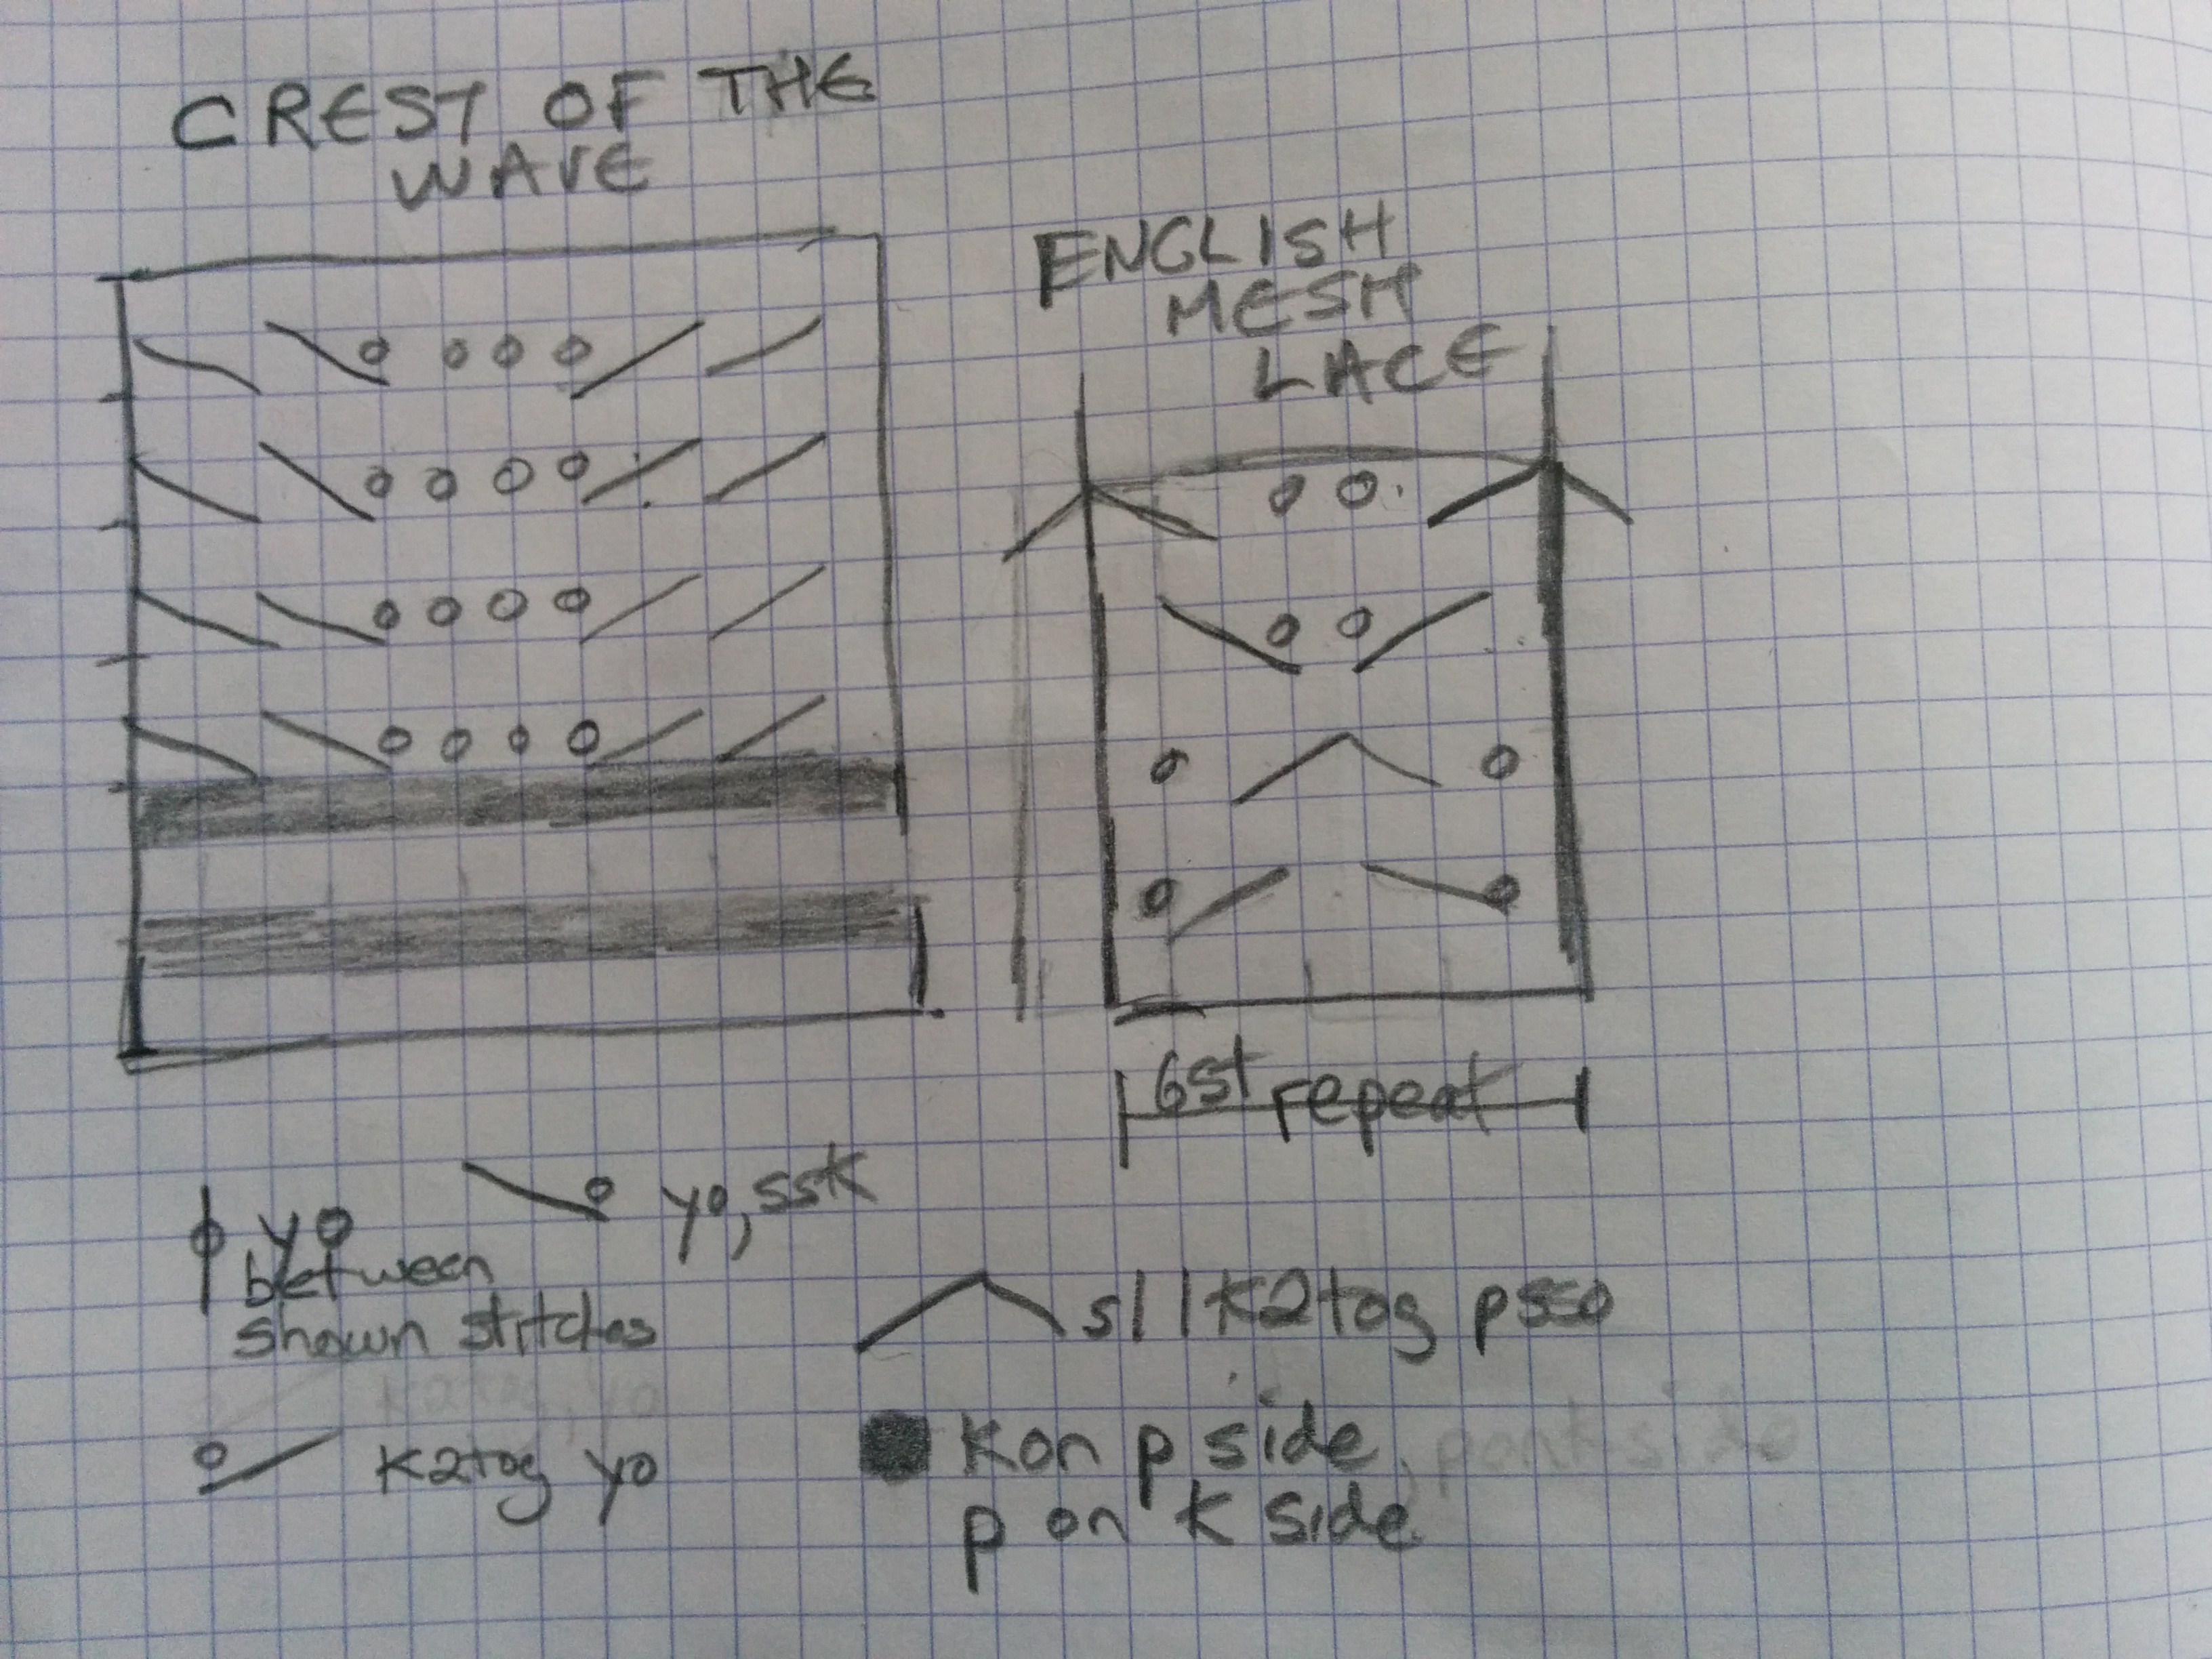 CREST OF THE
WAVE
ENGLISH
MESH
LACE
6st repeat
yo
between
shown stitches
yo, ssk
sl 1 k2tog psso
k2tog, yo
k2tog yo
K on p side
p on k side